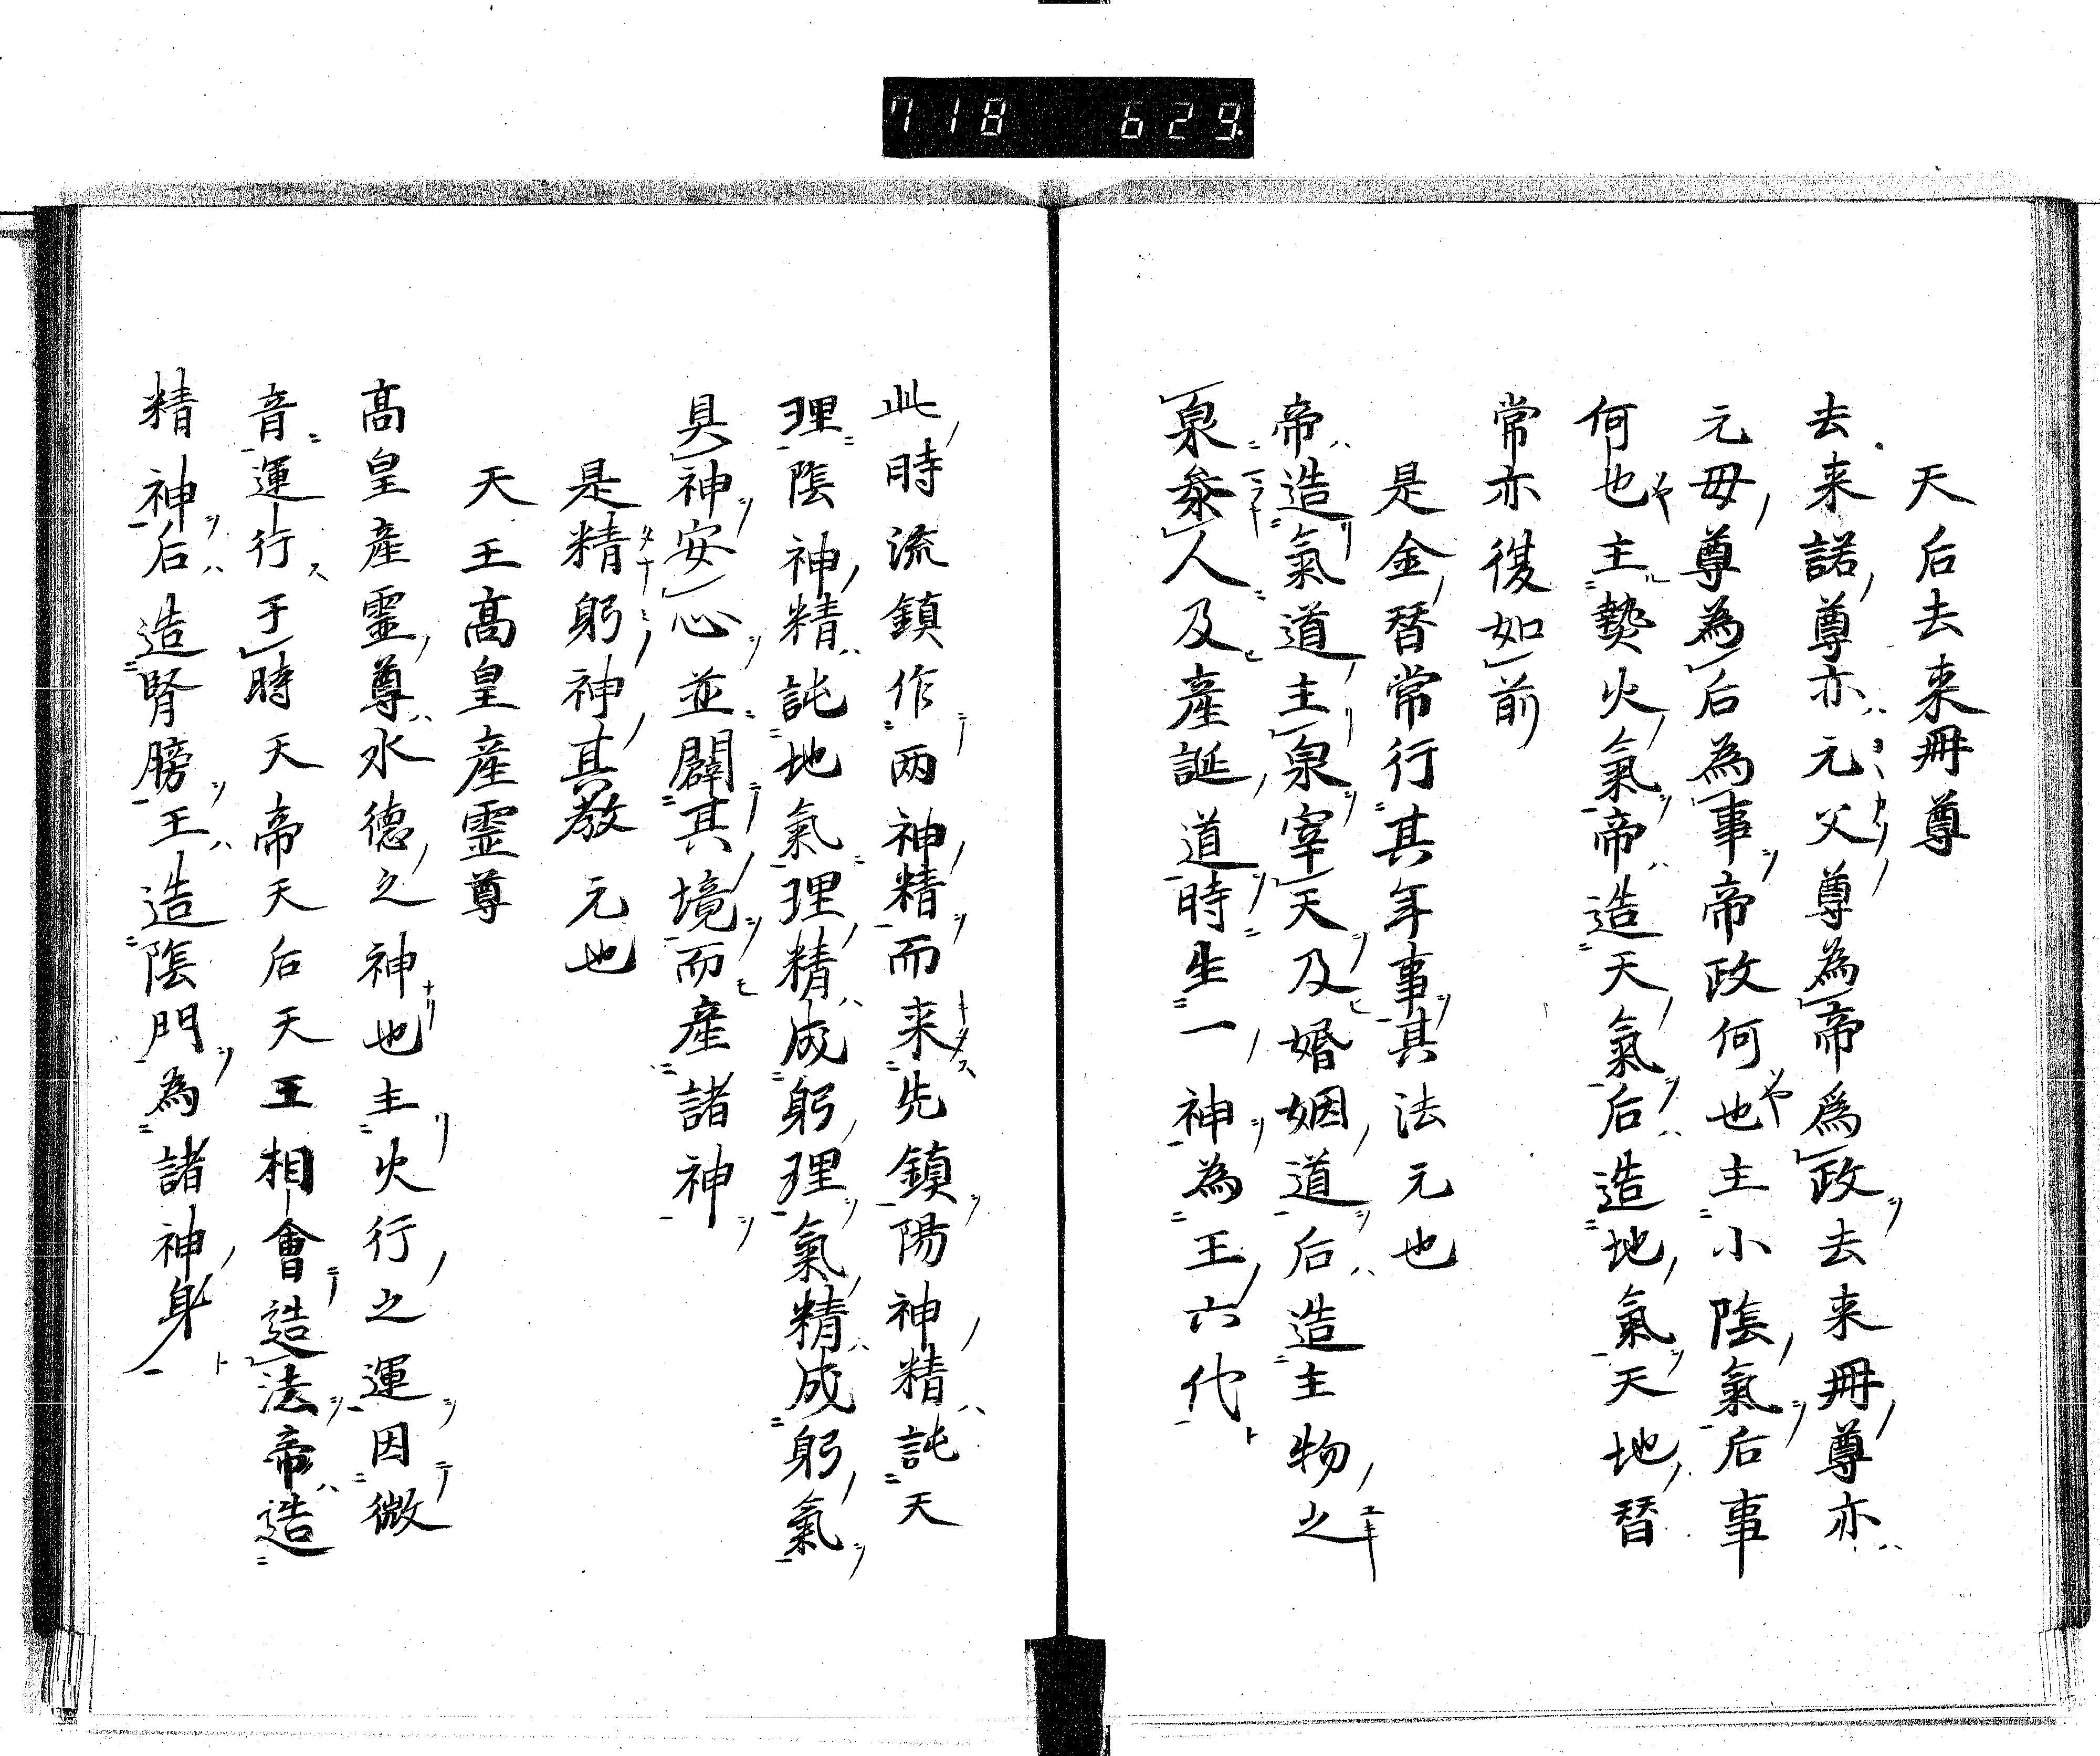 718 629
天后去来冊尊
去来諾尊亦元父尊為帝為政去来冊尊亦
元母尊為后為事帝政何也主小陰氣后事
何也主褺火氣帝造天氣后造地氣天地替
常亦復如前
是金替常行其年事其法元也
帝造氣道主泉宰天及婚姻道后造主物之
泉叅人及産誕道時生一神為王六代
此時流鎮作两神精而来先鎮陽神精託天
理陰神精託地氣理精成躬理氣精成躬氣
具神安心並闢其境而産諸神
是精躬神其教元也
天王高皇産霊尊
高皇産霊尊水德之神也主火行之運因微
音運行于時天帝天后天王相會造法帝造
精神后造腎膀王造陰門為諸神身